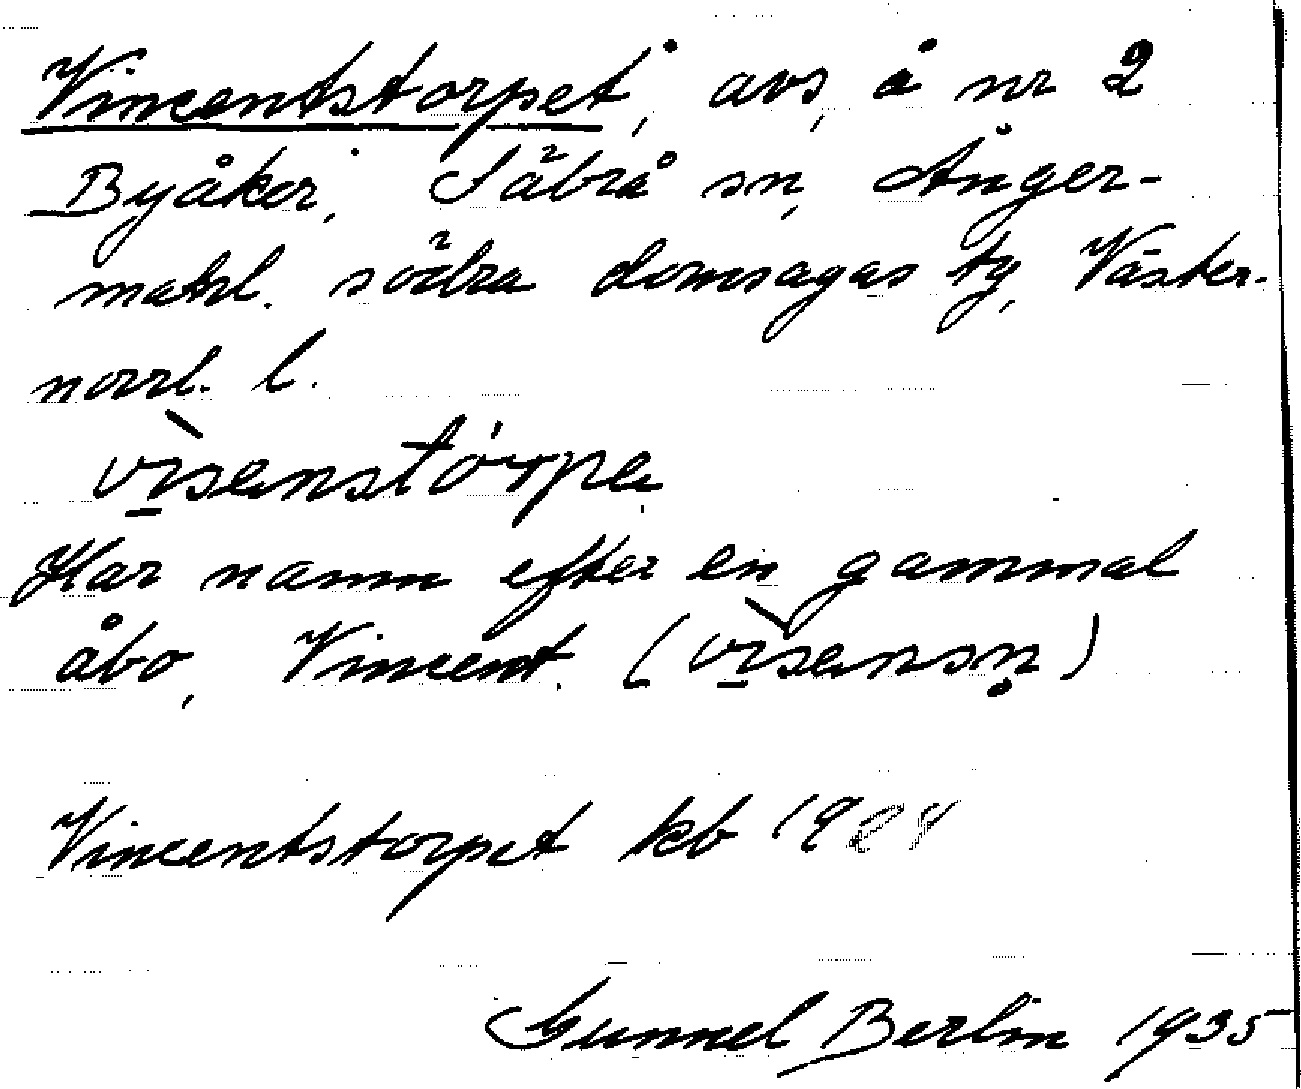 Vincentstorpet, avs, å nr 2
Byåker, Säbrå sn, Ånger-
manl. södra domsagas tg, Väster-
norrl. l.
vìsenstórpe
Har namn efter en gammal
åbo, Vincent. (vìsensn̥)
Vincentstorpet kb 19
Gunnel Berlin 1935